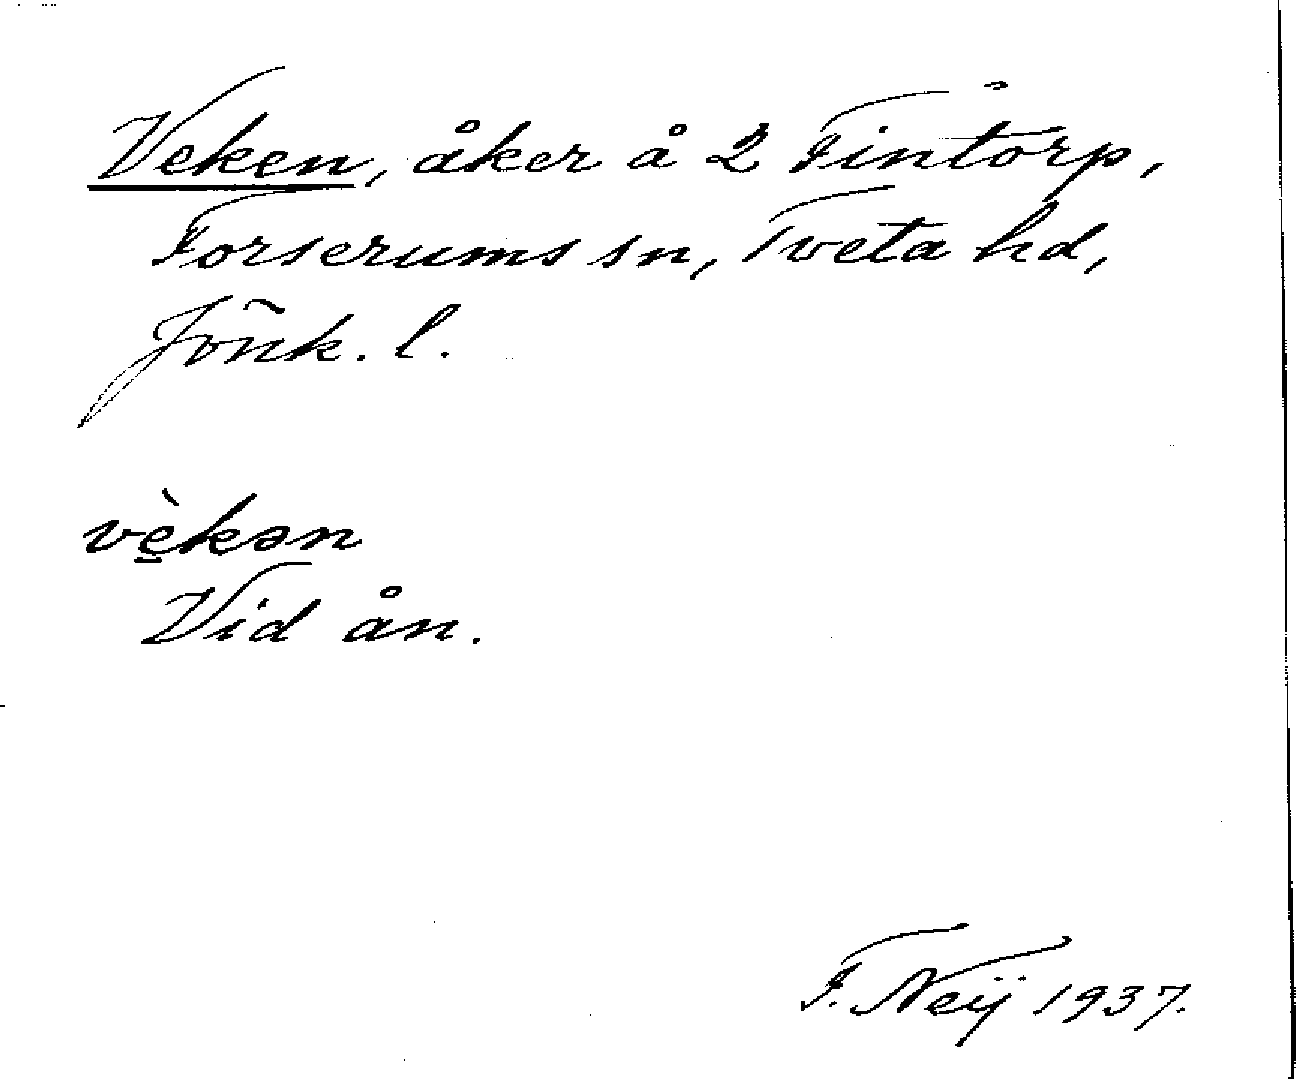 Veken, åker å 2 Fintorp,
Forserums sn, Tveta hd,
Jönk. l.
vè̱kən
Vid ån.
F. Neij 1937.